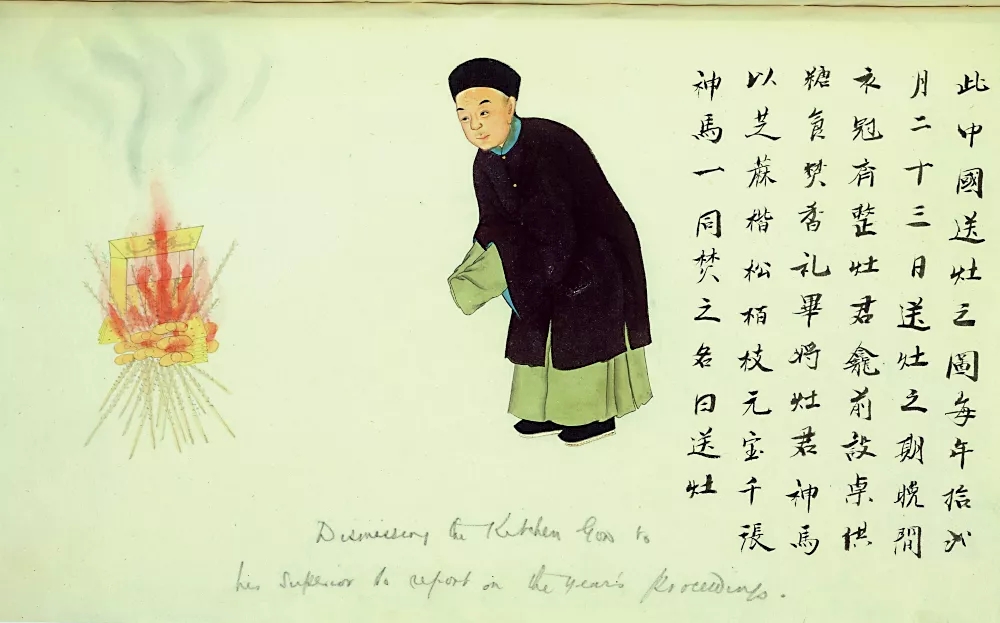 此中國送灶之圖每年拾弍
月二十三日送灶之期晚間
衣冠齊整灶君龕前設桌供
糖食焚香礼畢將灶君神馬
以芝蔴楷松栢枝元宝千張
神馬一同焚之名曰送灶
Dismissing the Kitchen God to
his Superior to report on the year's Proceedings.